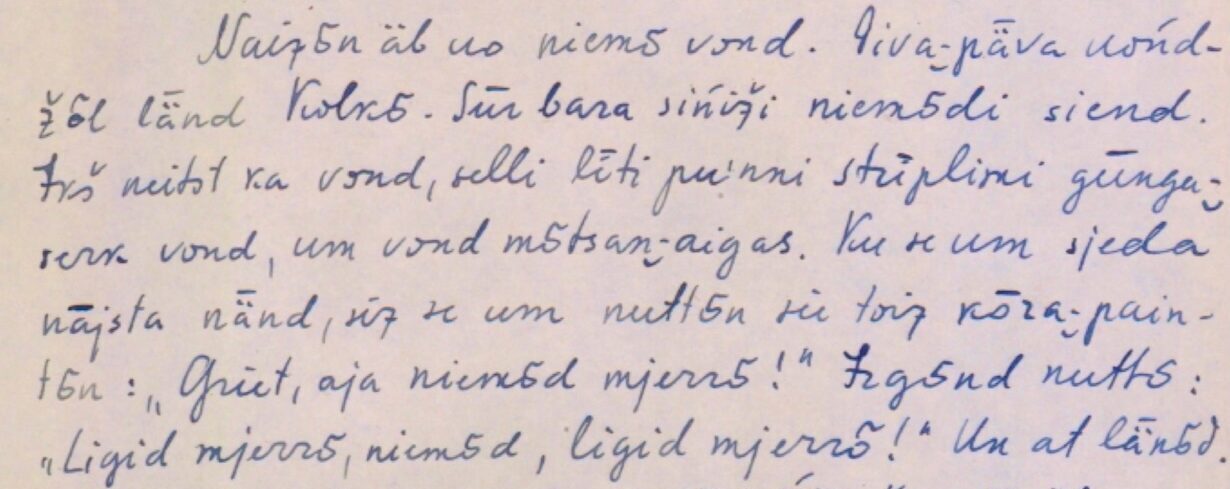 Naizõn äb uo niemõ vond. Piva-päva uońd-
žõl länd Kolkõ. Sūr bara siņiži niemõdi siend.
Ikš neitst ka vond, selli līti puinni strīplimi gūnga-
serk vond, um vond mõtsan-aigas. Ku se um sjeda
nājsta nänd, siz se um nuttõn sie toiz kōra-pain-
tõn: „Griet, aja niemõd mjerrõ!" Irgõnd nuttõ:
„Ligid mjerrõ, niemõd, ligid mjerrõ!" Un at länõd.